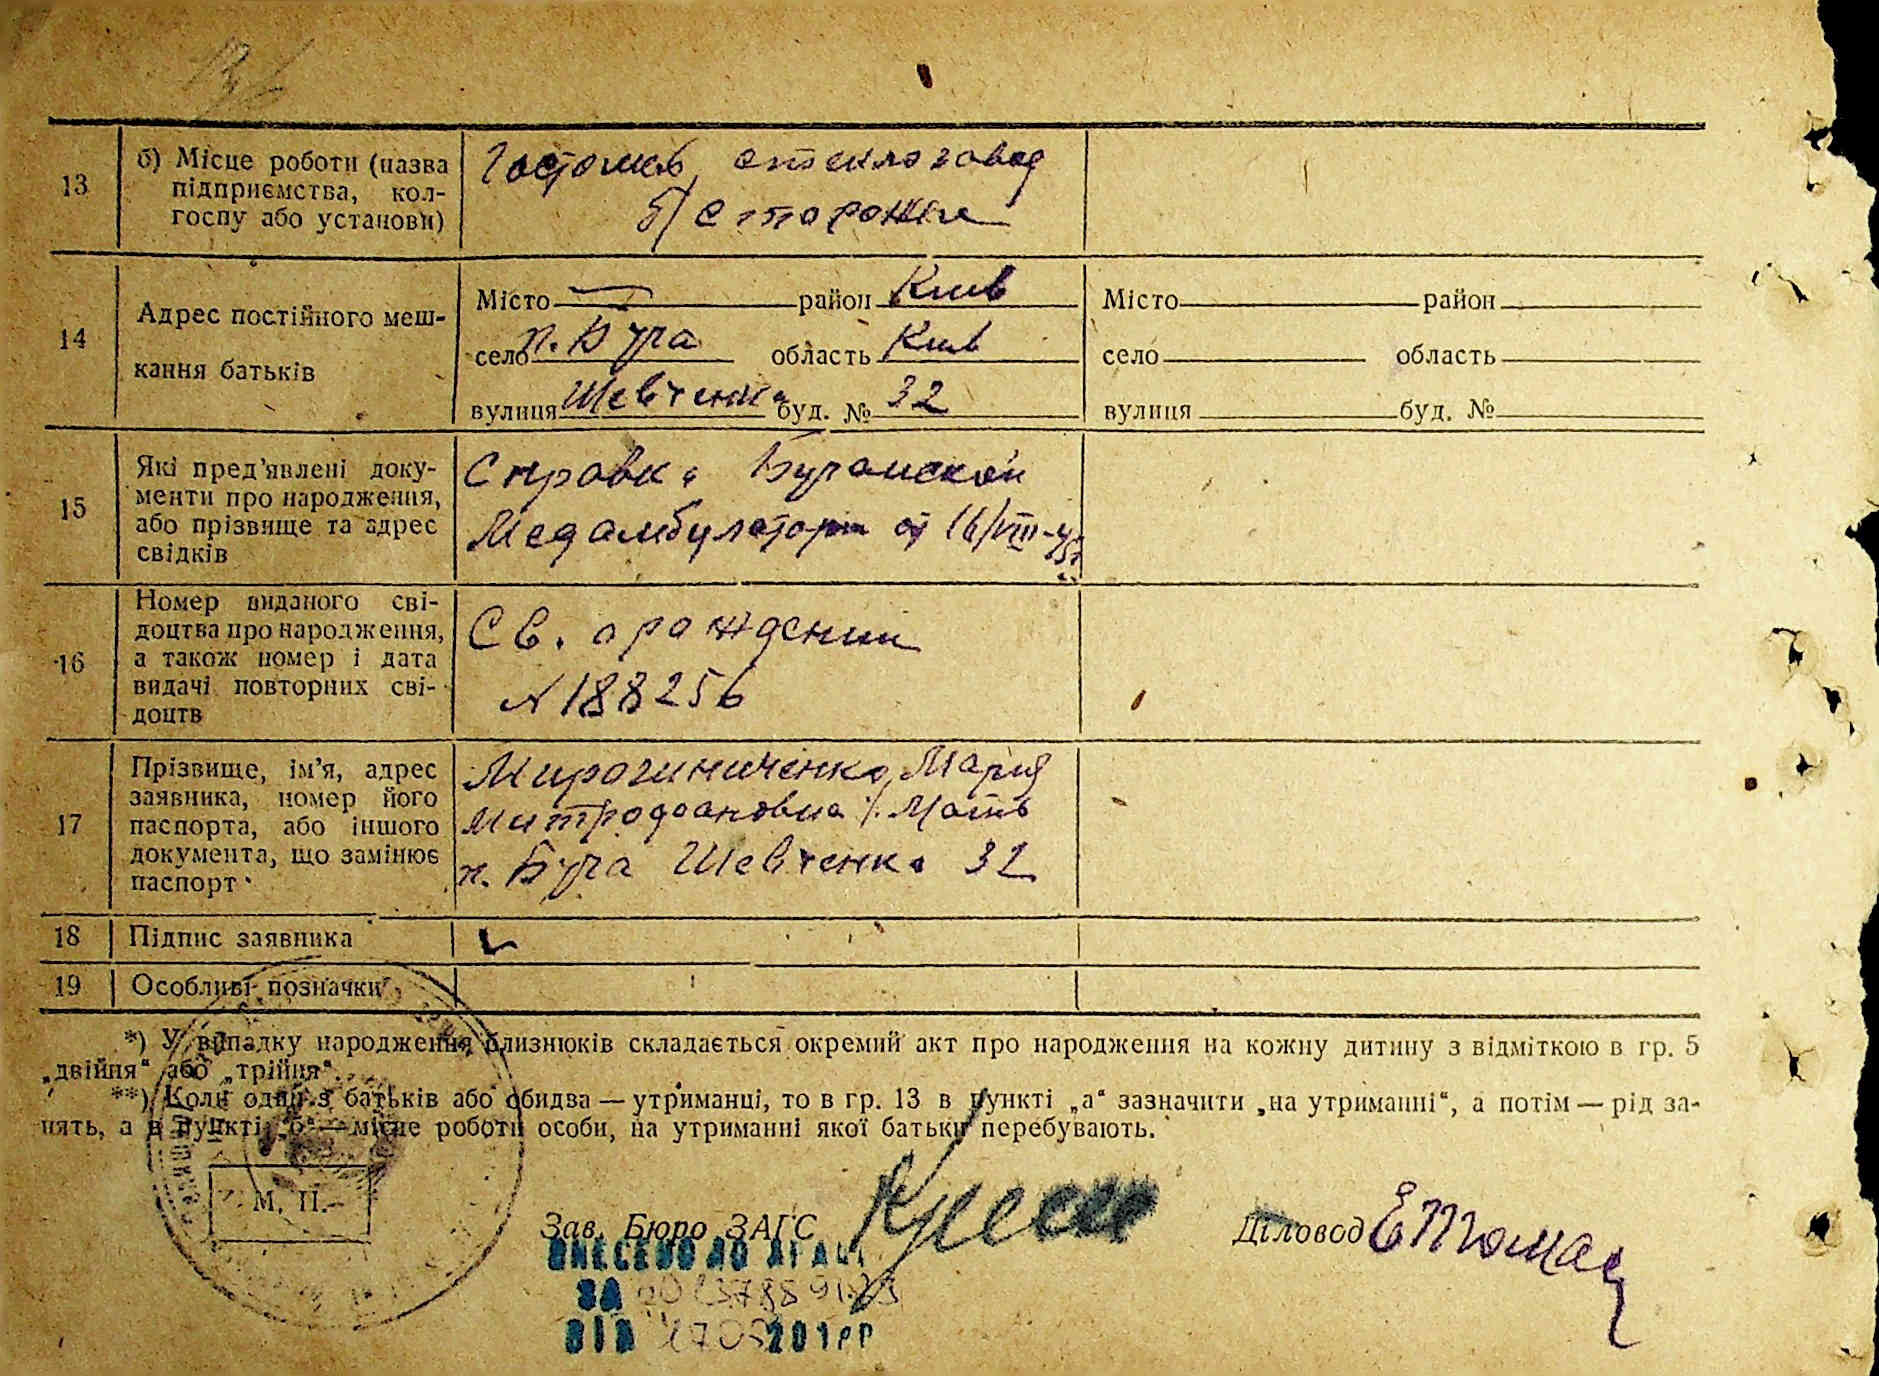 13
б) Місце роботи (назва
підприємства, кол-
госпу або установи)
Гостомев, стеклозавод
б/ сторожем
14
Адрес постійного меш-
кання батьків
Місто — район Киев
село п. Буча область Киев
вулиця Шевченка буд. № 32
Місто район
село область
вулиця буд. №
15
Які пред'явлені доку-
менти про народження,
або прізвище та адрес
свідків
Справка Бучанской
Медамбулатории от 16/VIII-
16
Номер виданого сві-
доцтва про народження,
а також номер і дата
видачі повторних сві-
доцтв
Св. о рождении
№ 188256
17
Прізвище, ім'я, адрес
заявника, номер його
паспорта, або іншого
документа, що замінює
паспорт
Мирогиниченко Мария
Митрофановна /. Мать
п. Буча Шевченка 32
18
Підпис заявника
19
Особливі позначки
*) У випадку народження близнюків складається окремий акт про народження на кожну дитину з відміткою в гр. 5
„двійня“ або „трійня“.
**) Коли один з батьків або обидва — утриманці, то в гр. 13 в пункті „а“ зазначити „на утриманні“, а потім — рід за-
нять, а в пункті „б“ — місце роботи особи, на утриманні якої батьки перебувають.
М. П.
Зав. Бюро ЗАГС
Діловод
ВНЕСЕНО ДО ДРАЦС
ЗА
ВІД 201 Р